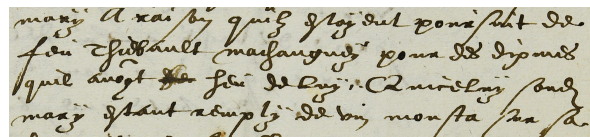 mary A raison quilz estoyent poursuit de
feu Thiebault mathanguey pour des dixmes
quil avoyt heu de luy, Quicelluy sond
mary estant remply de vin monsta sur sa